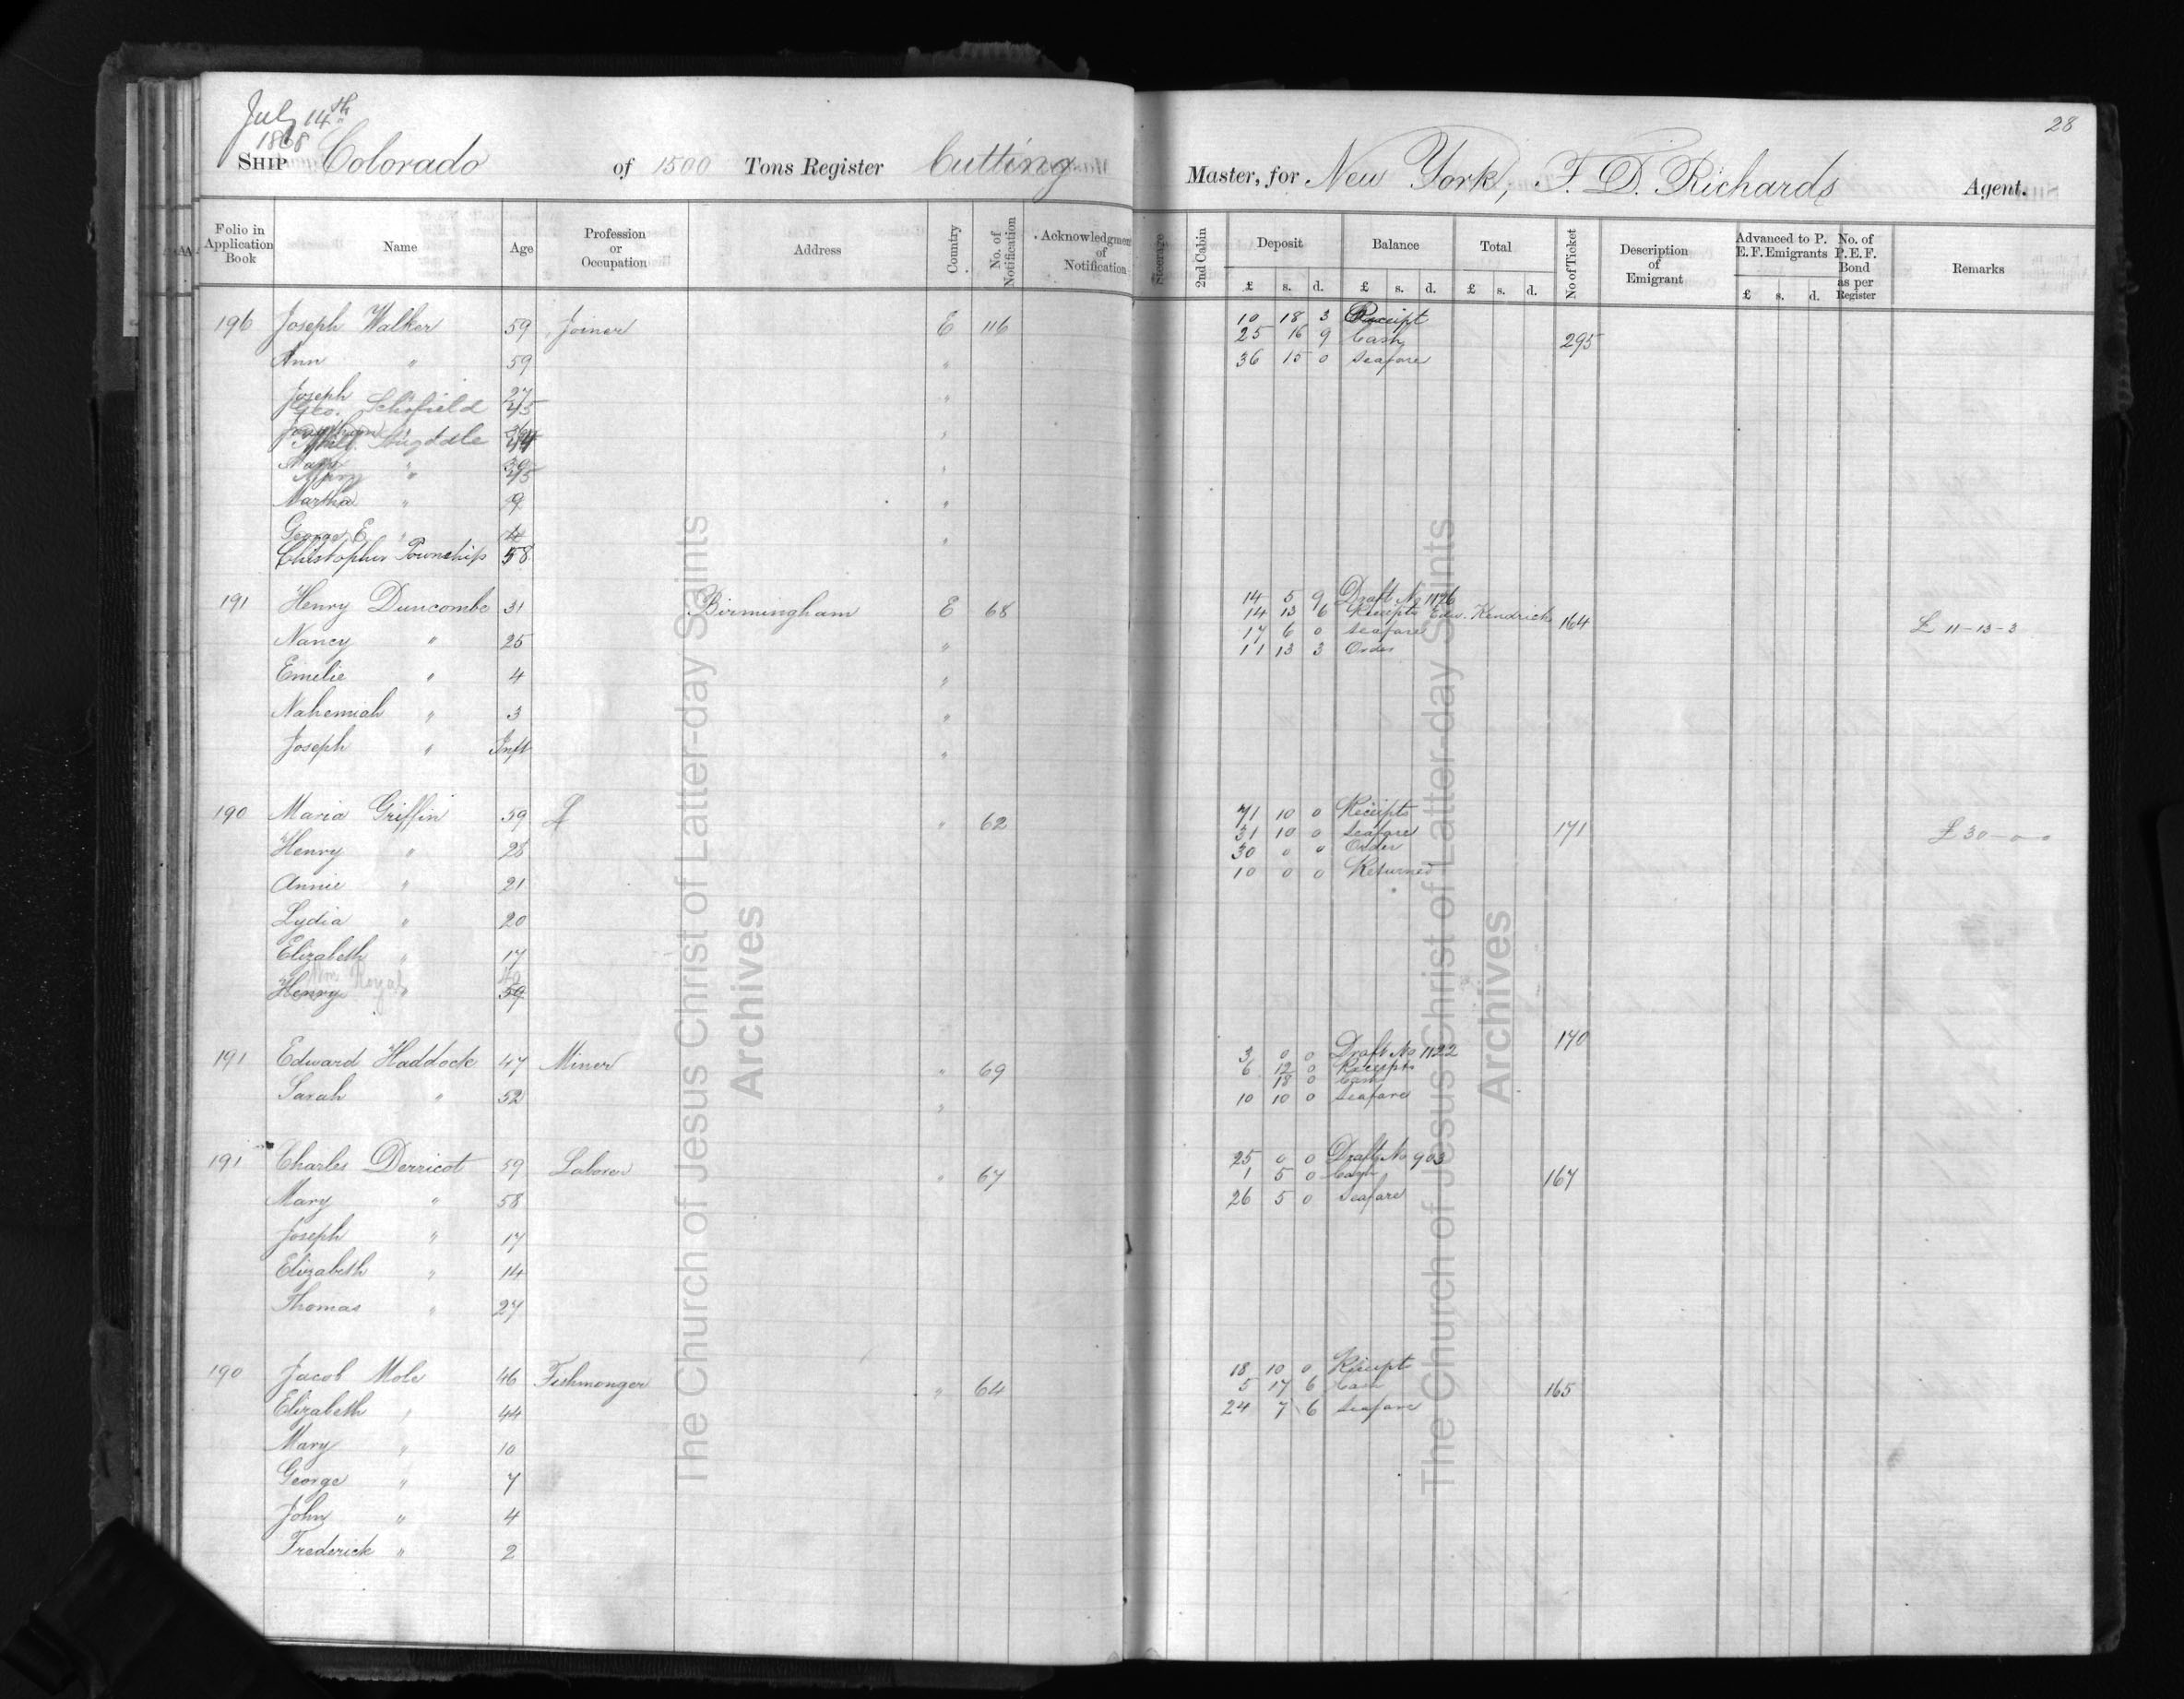 28
July 14th
1868
SHIP Colorado of 1500 Tons Register Cutting Master, for New York, F. D. Richards Agent.
Folio in Application Book Name Age Profession or Occupation Address Country No. of Notification Acknowledgment of Notification Steerage 2nd Cabin Deposit £ s. d. Balance £ s. d. Total £ s. d. No of Ticket Description of Emigrant Advanced to P. E. F. Emigrants £ s. d. No. of P.E.F. Bond as per Register Remarks
196 Joseph Walker 59 Joiner E 116 10 18 3 Receipt
25 16 9 Cash 295
Ann " 59 " 36 15 0 Seafare
Joseph 27 "
Geo. Schofield 45
"
Mary " "
Martha " 9 "
George E. " 4 "
Christopher Township 58
191 Henry Duncombe 31 Birmingham E 68 14 5 9 Draft No 1126
14 13 6 Receipts Edw. Kendrick 164 £ 11-13-3
Nancy " 25 " 17 6 0 Seafare
11 13 3 Order
Emilie " 4 "
Nahemiah " 3 "
Joseph " Inft "
190 Maria Griffin 59 " 62 71 10 0 Receipts
31 10 0 Seafare 171 £ 30-0-0
Henry " 28 30 0 0 Order
Annie " 21 10 0 0 Returned
Lydia " 20
Elizabeth " 17
Wm Royal
Henry " 59
191 Edward Haddock 47 Miner " 69 3 0 0 Draft No 1122 170
6 12 0 Receipts
18 0 Cash
Sarah " 52 " 10 10 0 Seafare
191 Charles Derricot 59 Laborer " 67 25 0 0 Draft No 903
1 5 0 Cash 167
Mary " 58 26 5 0 Seafare
Joseph " 17
Elizabeth " 14
Thomas " 27
190 Jacob Mole 46 Fishmonger " 64 18 10 0 Receipt
5 17 6 Cash 165
Elizabeth " 44 24 7 6 Seafare
Mary " 10
George " 7
John " 4
Frederick " 2
The Church of Jesus Christ of Latter-day Saints
Archives
The Church of Jesus Christ of Latter-day Saints
Archives